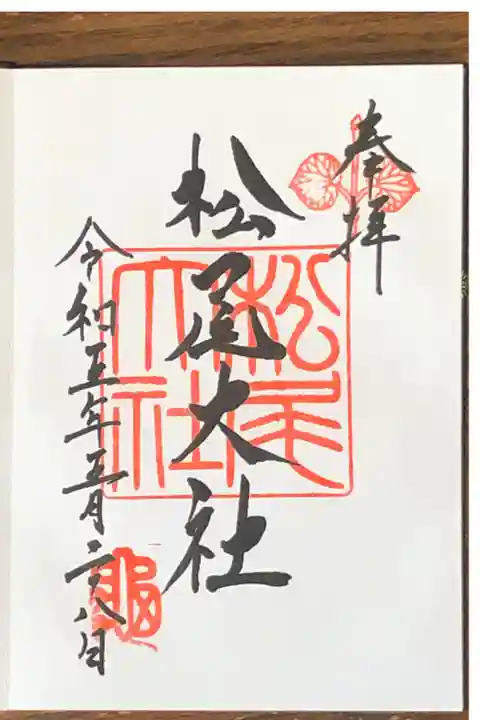 奉拝
松尾大社
松尾大社
令和五年五月二十八日